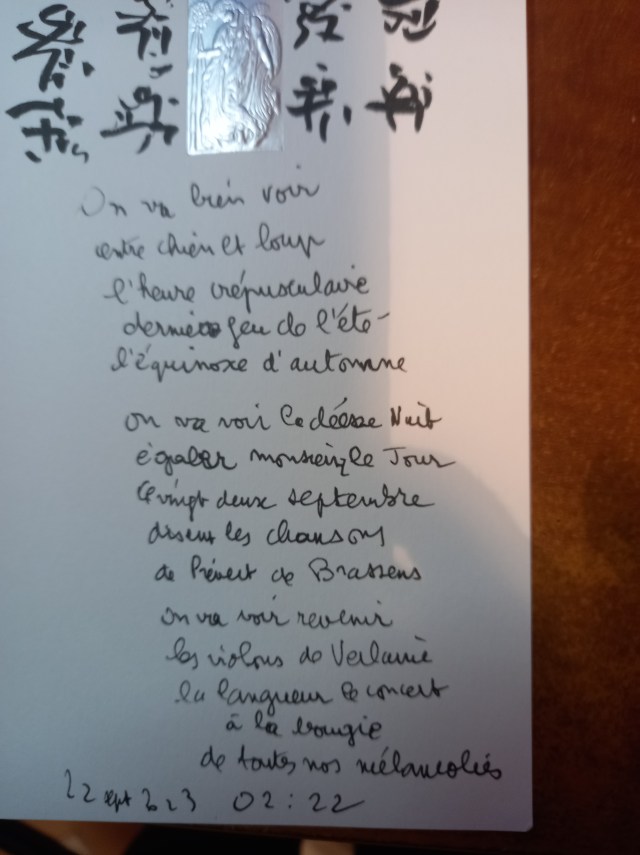 On va bien voir
entre chien et loup
l'heure crépusculaire
dernier feu de l'été
l'équinoxe d'automne
on va voir la déesse Nuit
égaler monsieur le Jour
le vingt deux septembre
disent les chansons
de Prévert de Brassens
on va voir revenir
les violons de Verlaine
la langueur le concert
à la bougie
de toutes nos mélancolies
22 sept 2023 02:22